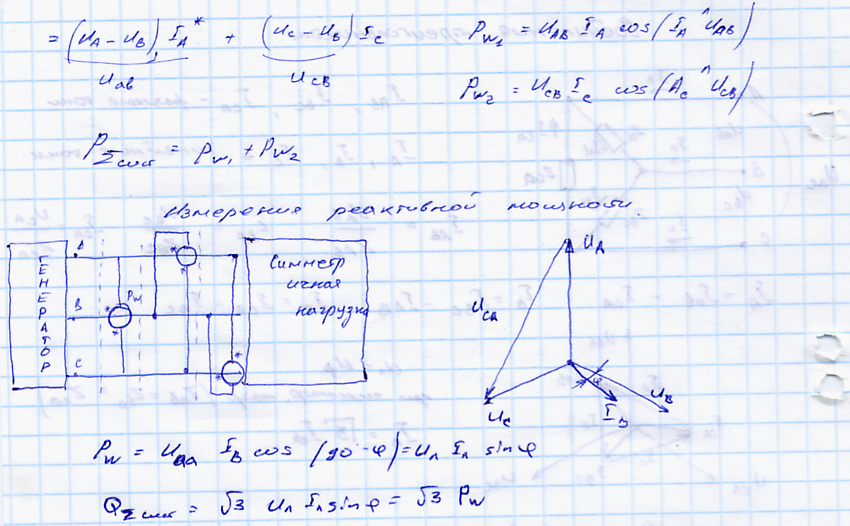 = (U_A – U_B) I_A* + (U_C – U_B) I_C
U_ab U_CB
P_W1 = U_AB I_A cos(I_A ^ U_AB)
P_W2 = U_CB I_C cos(A_C ^ U_CB)
P_Σсист = P_W1 + P_W2
Измерение реактивной мощности.
ГЕНЕРАТОР
A
B
C
*
*
P_W
*
*
*
*
Симметр
ичная
нагрузка
U_A
U_CA
U_C
U_B
I_B
φ
P_W = U_CA I_B cos (90 - φ) = U_Л I_Л sin φ
Q_Σсист = √3 U_Л I_Л sin φ = √3 P_W